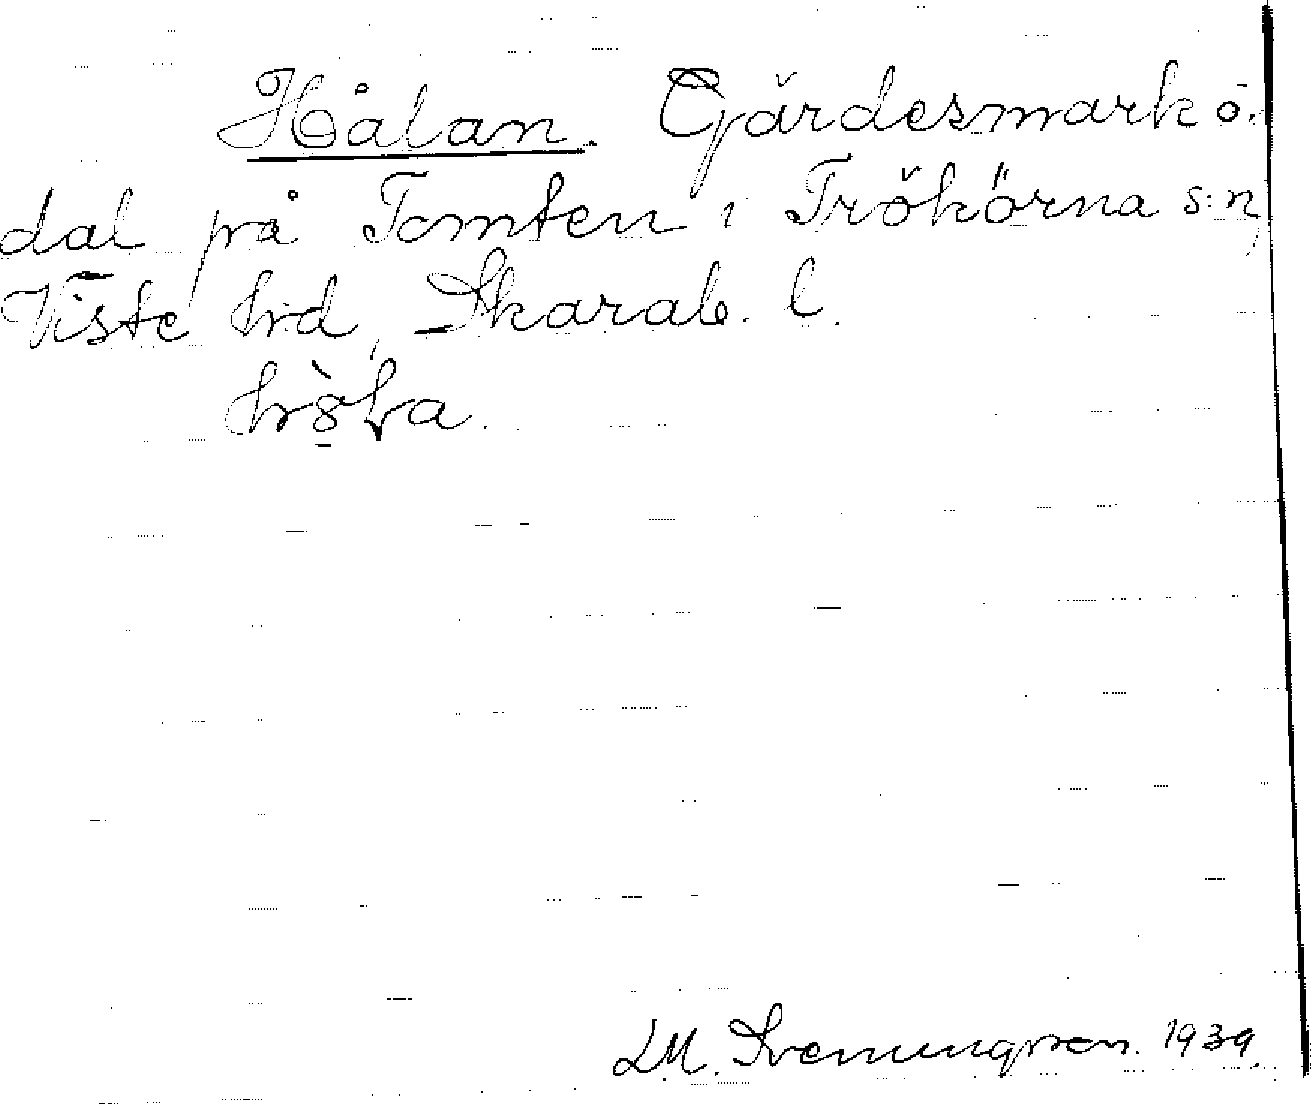 Hålan. Gärdesmark o.
dal på Tomten i Trökörna s:n,
Viste hrd, Skarab. l.
M. Svenungsson. 1939.